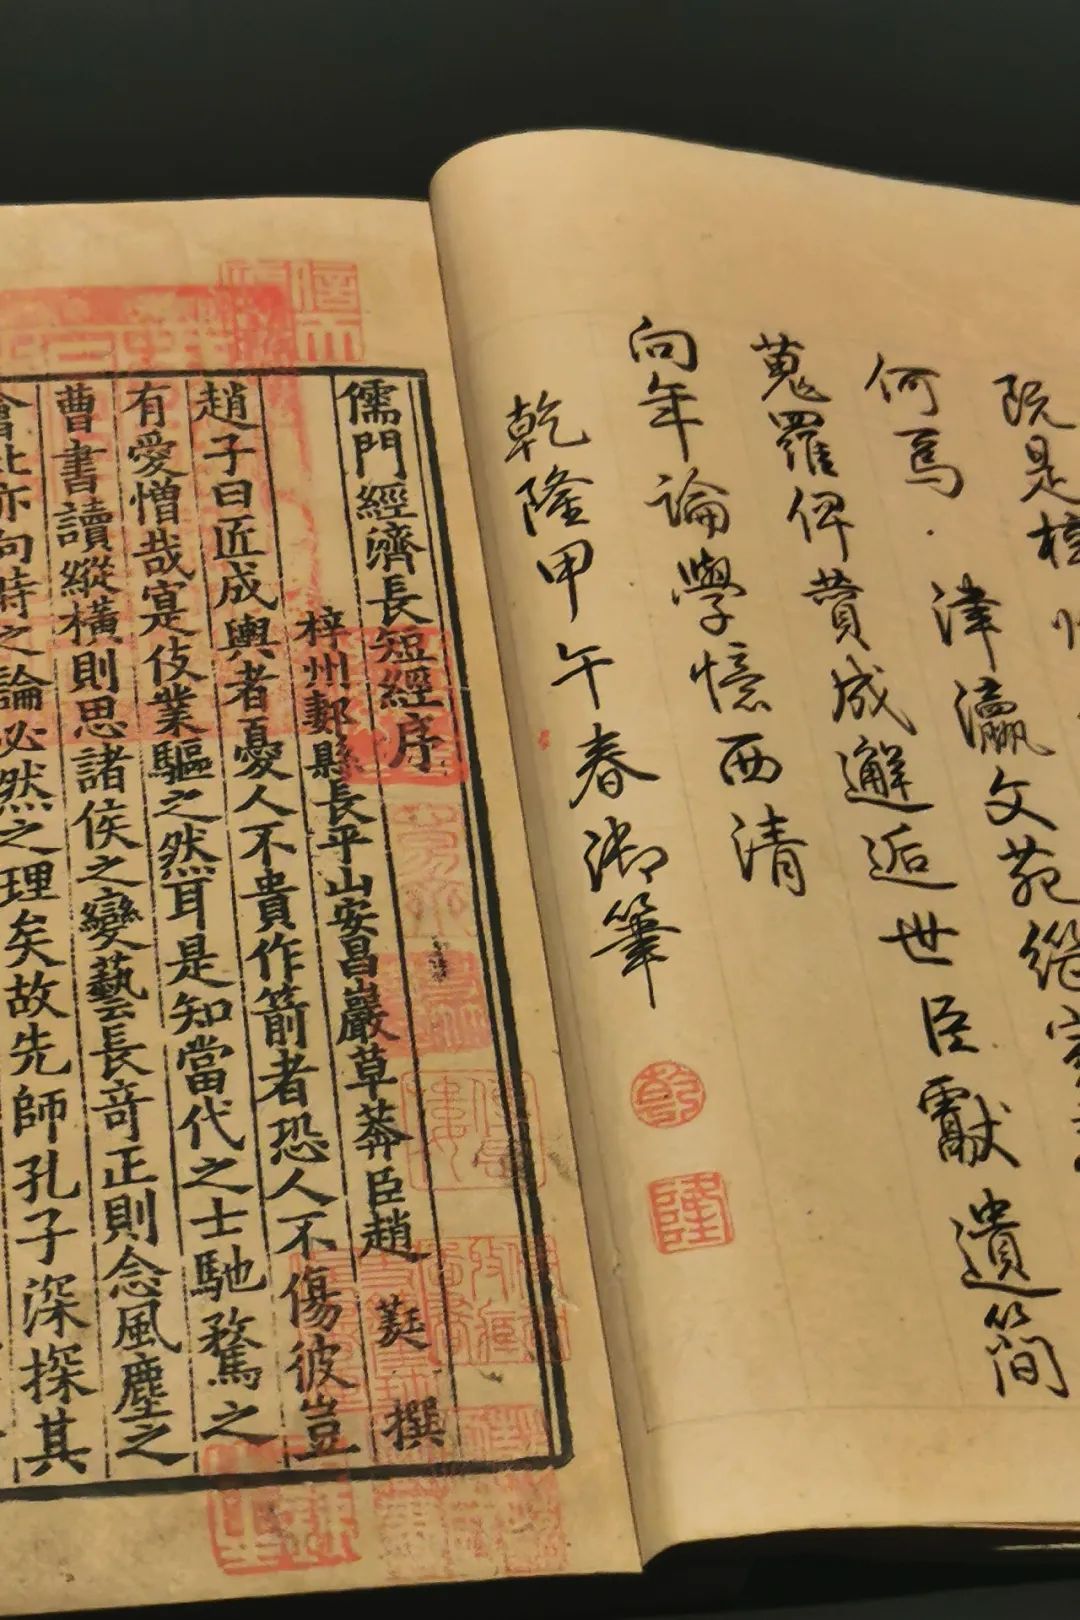 既是
何焉津瀛文苑繼
蒐羅俾贊成邂逅世臣獻遺簡
向年論學憶西清
乾隆甲午春御筆
乾
隆
儒門經濟長短經序
梓州郪縣長平山安昌巖草莽臣趙蕤撰
趙子曰匠成輿者憂人不貴作箭者恐人不傷彼豈
有愛憎哉寔伎業驅之然耳是知當代之士馳騖之
曹書讀縱橫則思諸侯之變藝長奇正則念風塵之
會此亦向時之論必然之理矣故先師孔子深探其